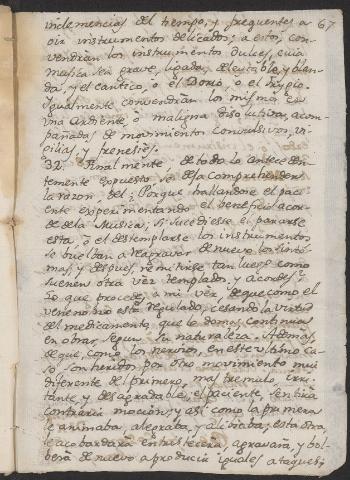 inclemencias del tiempo, y frequentes a 67
oir instrumentos delicados; a estos, con-
vendran los instrumentos dulces, cuia
musica sea grave, ligada, deleytable, y blan-
da, y el cantico, o el Dorio, o el
Igualmente convendran los mismos en
una ardiente, o maligna disolutiva, acom-
pañadas de movimientos convulsivos, vi-
gilias, y frenesies.
32. Finalmente de todo lo anteceden-
temente expuesto se deja comprehender
la razon, del ¿Porque hallandose el paci-
ente experimentando el beneficio acor-
de de la Musica; si sucediesse el pararse
esta, o el destemplarse los instrumentos
se buelban a reagravar de nuevo los sinto-
mas, y despues, remitirse tan luego como
suenen otra vez templados, y acordes?
Lo que procede, a mi ver, de que como el
veneno no està regulado, cesando la virtud
del medicamento, que le doma, continua
en obrar, segun su naturaleza. Ademas,
de que, como los nervios, en este ultimo ca-
so son heridos por otro movimiento mui
diferente del primero, mas tremulo, irri-
tante, y desagradable, el paciente, sentirà
contraria mocion, y asi como la primera
le animaba, alegraba, y aliviaba; esta otra,
le acobardarà entristecerà, agravarà, y bol-
berà de nuevo a producir iguales ataques,